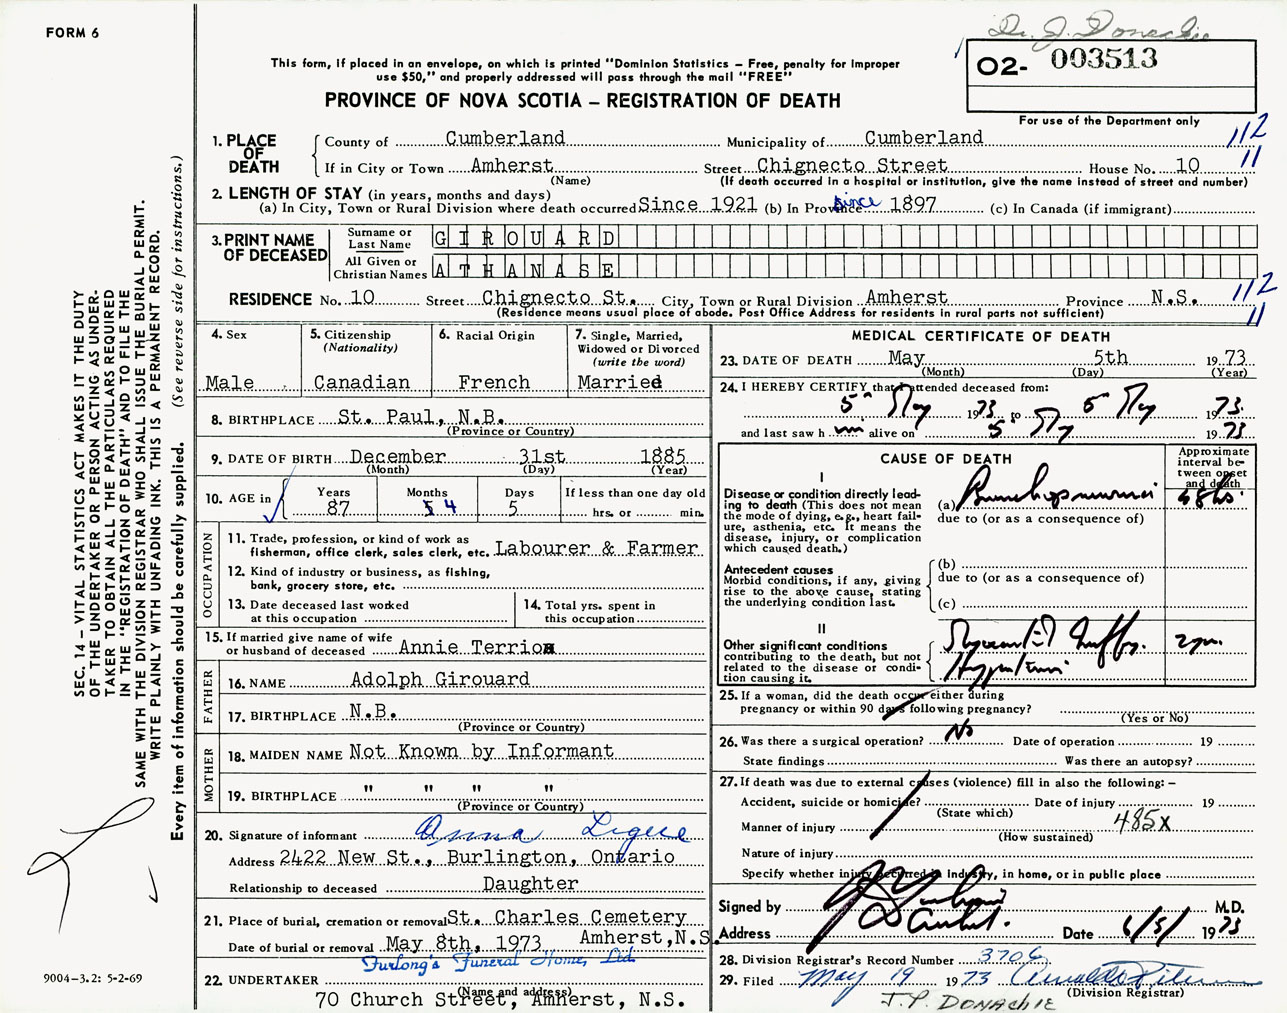 FORM 6
Dr. J. Donachie
This form, if placed in an envelope, on which is printed "Dominion Statistics – Free, penalty for improper
use $50," and properly addressed will pass through the mail "FREE"
O2- 003513
PROVINCE OF NOVA SCOTIA – REGISTRATION OF DEATH
For use of the Department only
1. PLACE OF DEATH
County of Cumberland Municipality of Cumberland 112
If in City or Town Amherst Street Chignecto Street House No. 10 11
(Name) (If death occurred in a hospital or institution, give the name instead of street and number)
2. LENGTH OF STAY (in years, months and days)
(a) In City, Town or Rural Division where death occurred Since 1921 (b) In Province since 1897 (c) In Canada (if immigrant)
3. PRINT NAME OF DECEASED
Surname or Last Name GIROUARD
All Given or Christian Names ATHANASE
RESIDENCE No. 10 Street Chignecto St. City, Town or Rural Division Amherst Province N.S. 112
(Residence means usual place of abode. Post Office Address for residents in rural parts not sufficient) 11
4. Sex Male
5. Citizenship (Nationality) Canadian
6. Racial Origin French
7. Single, Married, Widowed or Divorced (write the word) Married
8. BIRTHPLACE St. Paul, N.B.
(Province or Country)
9. DATE OF BIRTH December 31st 1885
(Month) (Day) (Year)
10. AGE in Years 87 Months 4 Days 5 If less than one day old
hrs. or min.
OCCUPATION
11. Trade, profession, or kind of work as
fisherman, office clerk, sales clerk, etc. Labourer & Farmer
12. Kind of industry or business, as fishing,
bank, grocery store, etc.
13. Date deceased last worked
at this occupation
14. Total yrs. spent in
this occupation
15. If married give name of wife
or husband of deceased Annie Terrio
FATHER
16. NAME Adolph Girouard
17. BIRTHPLACE N.B.
(Province or Country)
MOTHER
18. MAIDEN NAME Not Known by Informant
19. BIRTHPLACE " " " "
(Province or Country)
20. Signature of informant Anna Legere
Address 2422 New St., Burlington, Ontario
Relationship to deceased Daughter
21. Place of burial, cremation or removal St. Charles Cemetery
Date of burial or removal May 8th, 1973 Amherst, N.S.
Furlong's Funeral Home, Ltd.
22. UNDERTAKER
(Name and address)
70 Church Street, Amherst, N.S.
MEDICAL CERTIFICATE OF DEATH
23. DATE OF DEATH May 5th 1973
(Month) (Day) (Year)
24. I HEREBY CERTIFY that I attended deceased from:
5th May 1973 to 5th May 1973
and last saw h im alive on 5th My 1973
CAUSE OF DEATH
Approximate interval between onset and death
I
Disease or condition directly lead-
ing to death (This does not mean
the mode of dying, e.g., heart fail-
ure, asthenia, etc. It means the
disease, injury, or complication
which caused death.)
(a) Bronchopneumonia 48 hs.
due to (or as a consequence of)
Antecedent causes
Morbid conditions, if any, giving
rise to the above cause, stating
the underlying condition last.
(b)
due to (or as a consequence of)
(c)
II
Other significant conditions
contributing to the death, but not
related to the disease or condi-
tion causing it.
Myocardial Insuffy. 2 yrs.
Hypertension
25. If a woman, did the death occur either during
pregnancy or within 90 days following pregnancy?
(Yes or No)
26. Was there a surgical operation? No Date of operation 19
State findings Was there an autopsy?
27. If death was due to external causes (violence) fill in also the following: –
Accident, suicide or homicide? Date of injury 19
(State which)
Manner of injury 485X
(How sustained)
Nature of injury
Specify whether injury occurred in industry, in home, or in public place
Signed by M.D.
Address Amherst. Date 6/5/ 1973
28. Division Registrar's Record Number 3706
29. Filed May 19 1973
(Division Registrar)
J.P. DONACHIE
SEC. 14 – VITAL STATISTICS ACT MAKES IT THE DUTY
OF THE UNDERTAKER OR PERSON ACTING AS UNDER-
TAKER TO OBTAIN ALL THE PARTICULARS REQUIRED
IN THE "REGISTRATION OF DEATH" AND TO FILE THE
SAME WITH THE DIVISION REGISTRAR WHO SHALL ISSUE THE BURIAL PERMIT.
WRITE PLAINLY WITH UNFADING INK. THIS IS A PERMANENT RECORD.
Every item of information should be carefully supplied. (See reverse side for instructions.)
9004–3.2: 5-2-69